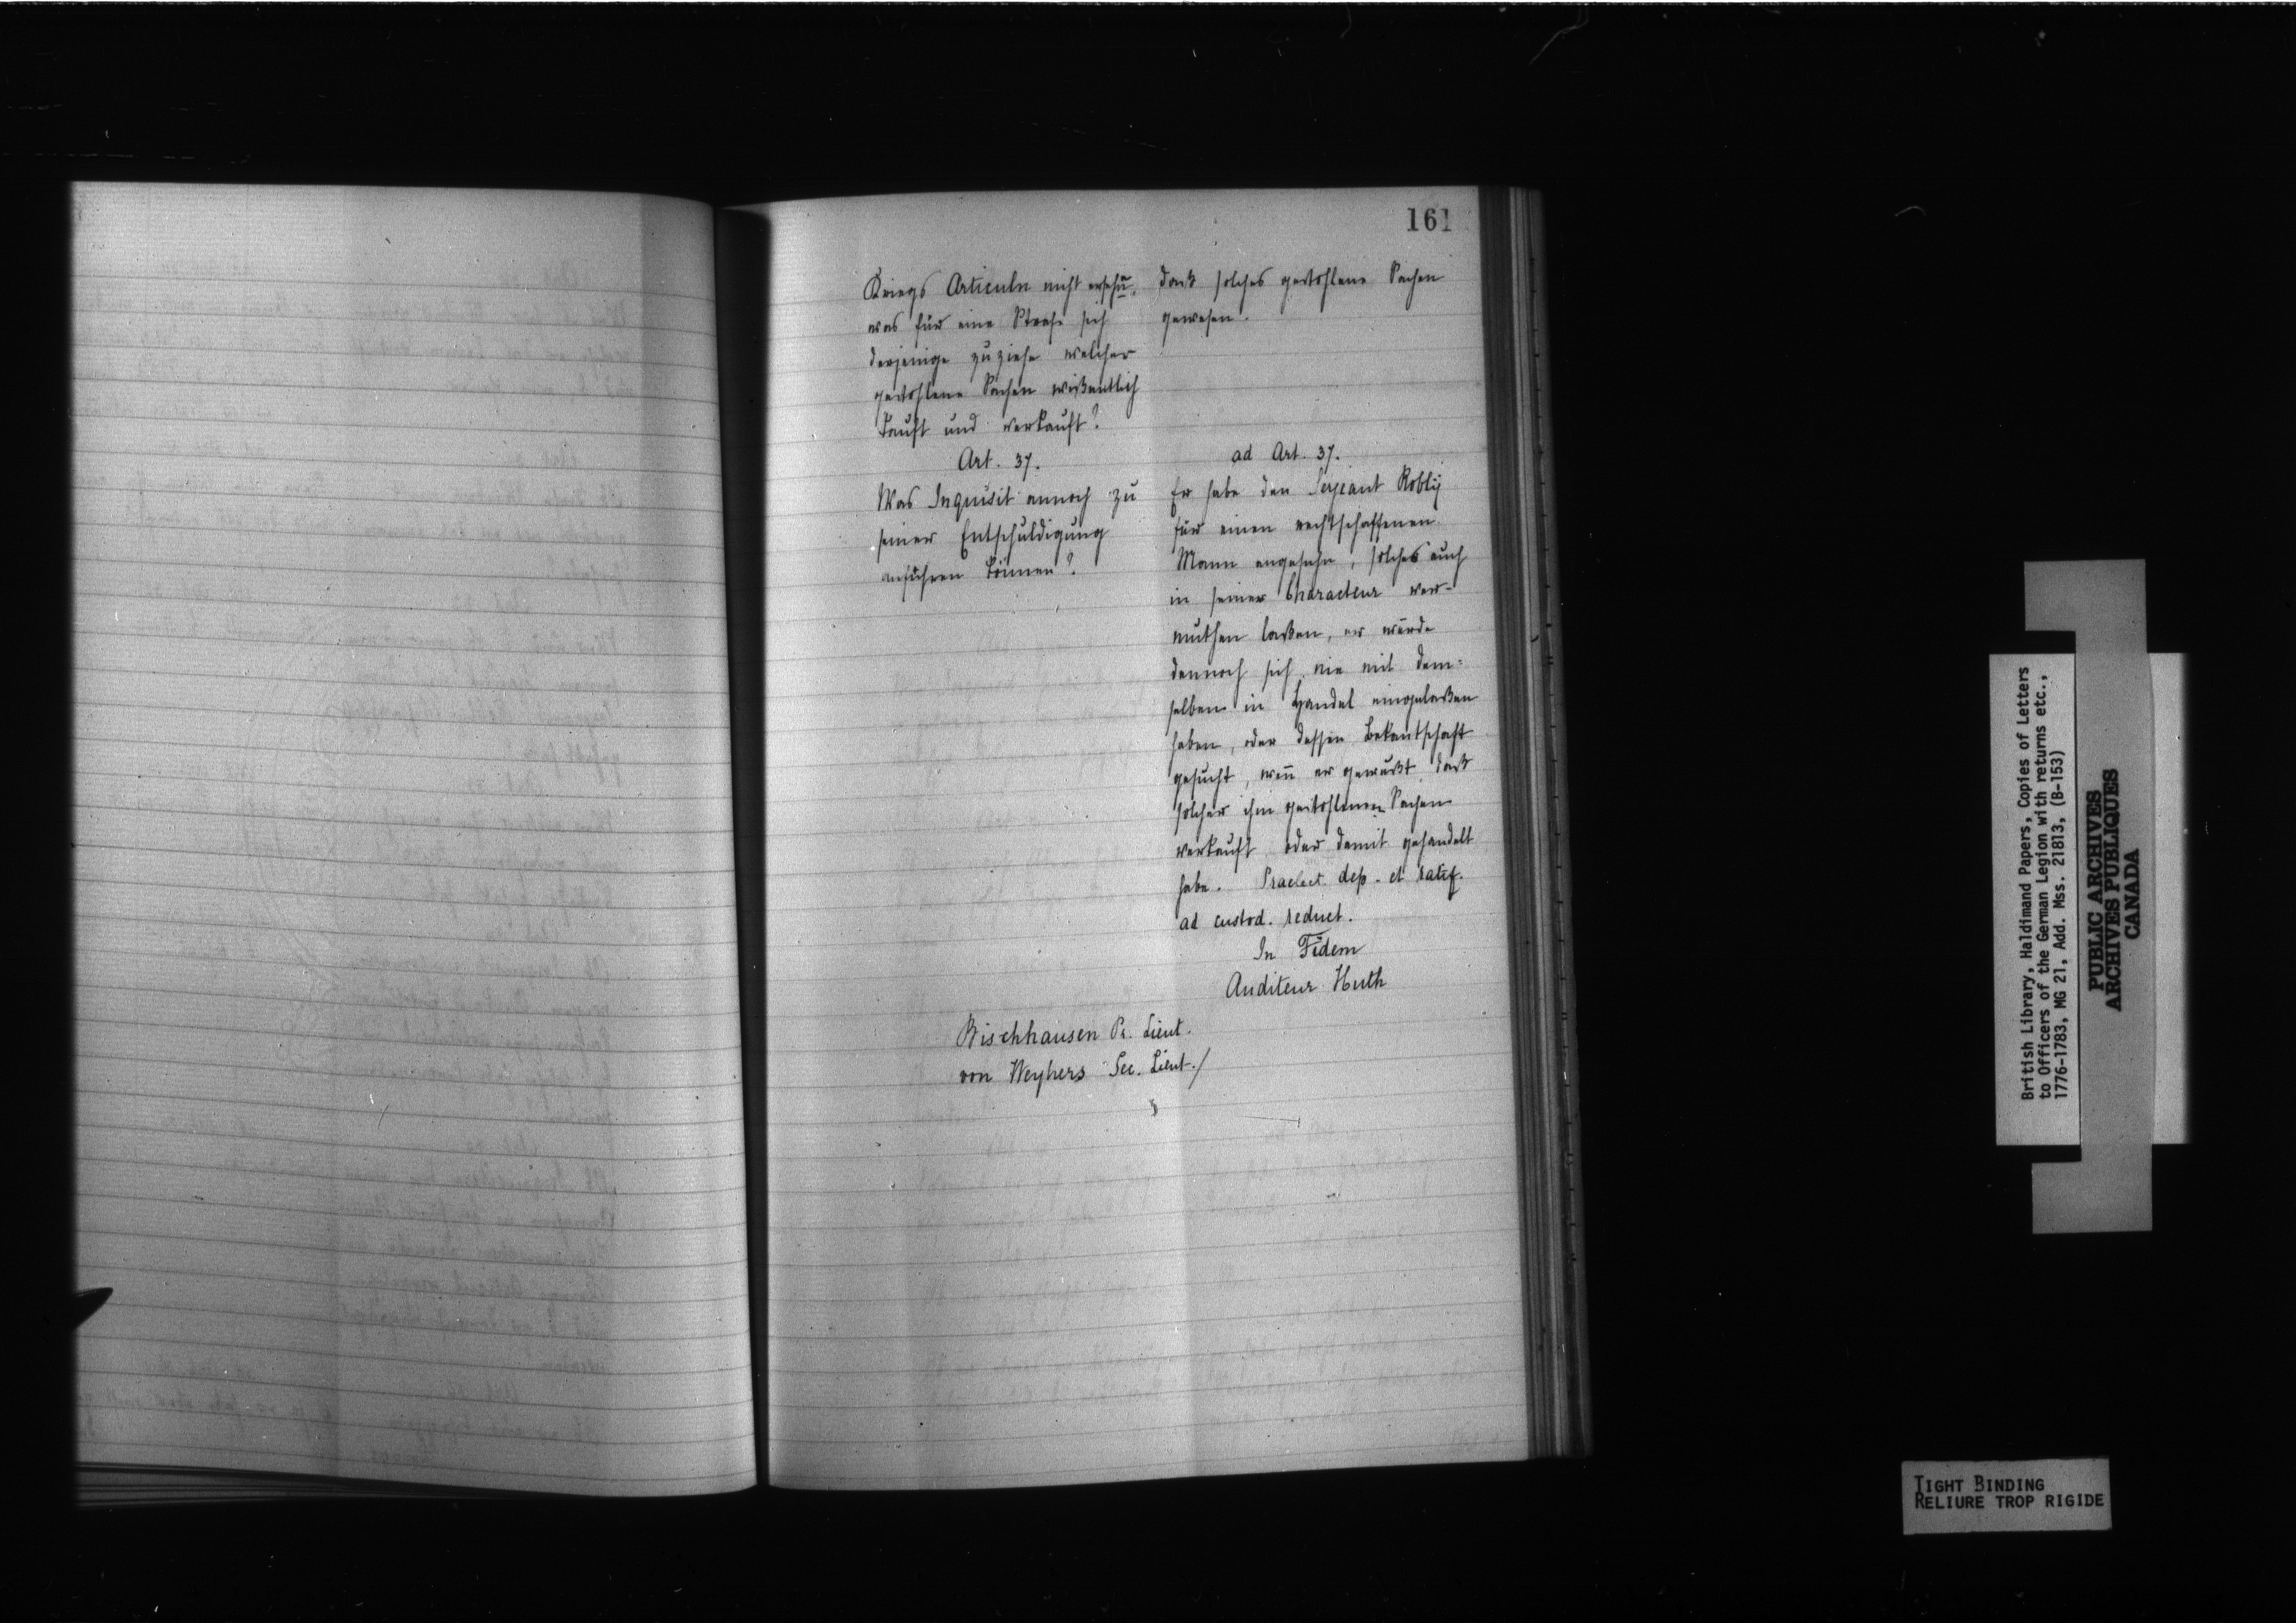 161
Kriegs Articuln nicht ersehn,
was für eine Strafe sich
derjenige zuziehe welcher
gestohlene Sachen wißentlich
kauft und verkauft?
Art. 37.
Was Inquisit annoch zu
seiner Entschuldigung
anführen können?
daß solches gestohlene Sachen
gewesen.
ad Art. 37.
Er habe den Serjeant Robly
für einen rechtschaffenen
Mann angesehn, solches auch
in seiner Characteur ver-
muthen laßen, er würde
dennoch sich nie mit dem=
selben in Handel eingelaßen
haben, oder dessen Bekantschaft
gesucht, wenn er gewußt, daß
solcher ihm gestohlenen Sachen
verkauft oder damit gehandelt
habe. Praelect. dep. et ratif.
ad custod. reduct.
In Fidem
Auditeur Huth
Bischhausen Pr. Lieut.
von Weyhers Sec. Lieut./
British Library, Haldimand Papers, Copies of Letters
to Officers of the German Legion with returns etc.,
1776-1783, MG 21, Add. Mss. 21813, (B-153)
PUBLIC ARCHIVES
ARCHIVES PUBLIQUES
CANADA
TIGHT BINDING
RELIURE TROP RIGIDE